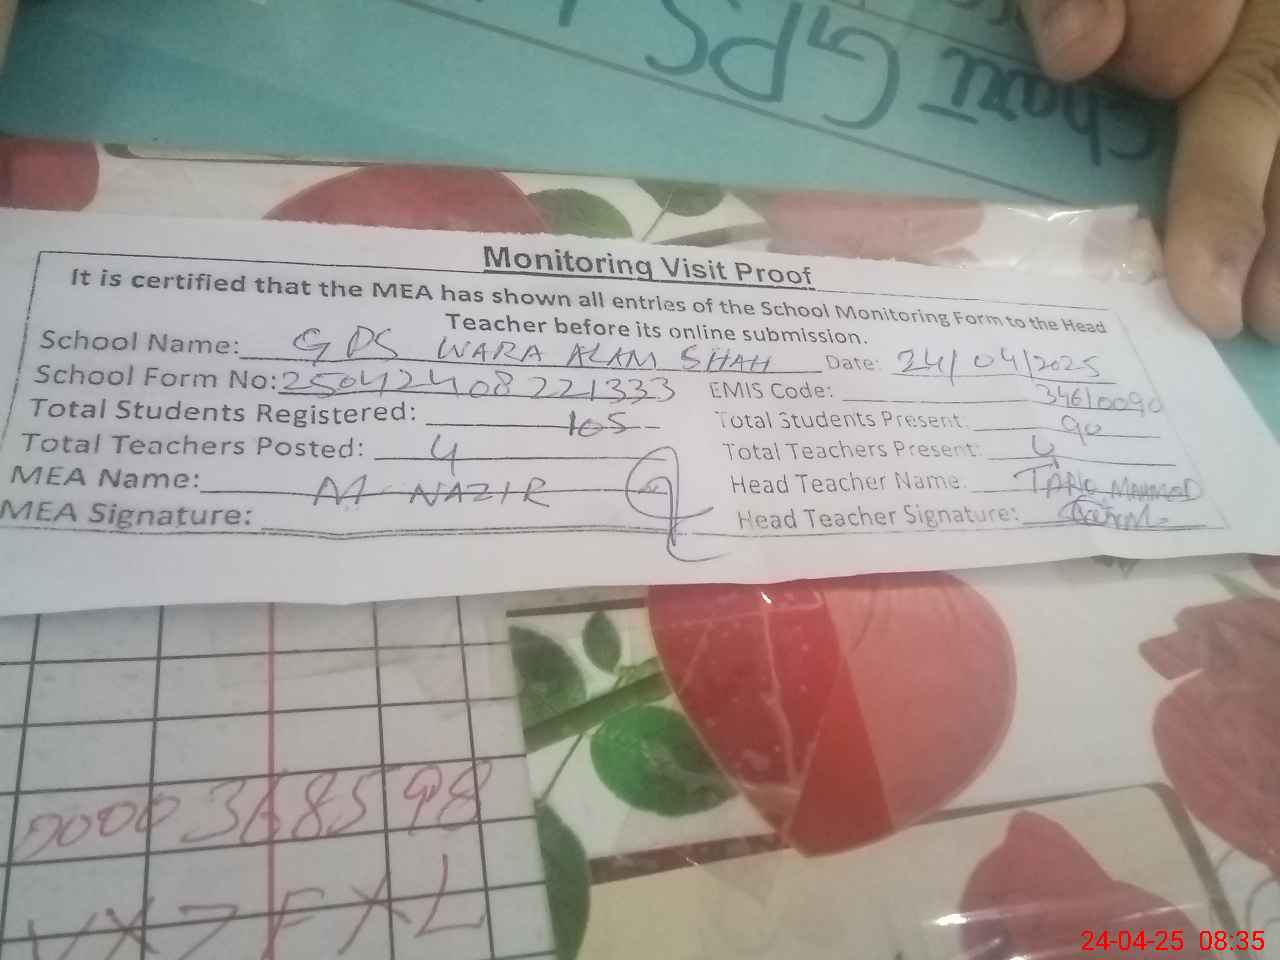 Chari GPS
Monitoring Visit Proof
It is certified that the MEA has shown all entries of the School Monitoring Form to the Head
Teacher before its online submission.
School Name: GPS WARA ALAM SHAH Date: 24/04/2025
School Form No: 25042408221333 EMIS Code: 34610090
Total Students Registered: 105 Total Students Present: 90
Total Teachers Posted: 4 Total Teachers Present: 4
MEA Name: M NAZIR Head Teacher Name: TARIQ MAHMOD
MEA Signature: Head Teacher Signature:
0000368598
24-04-25 08:35